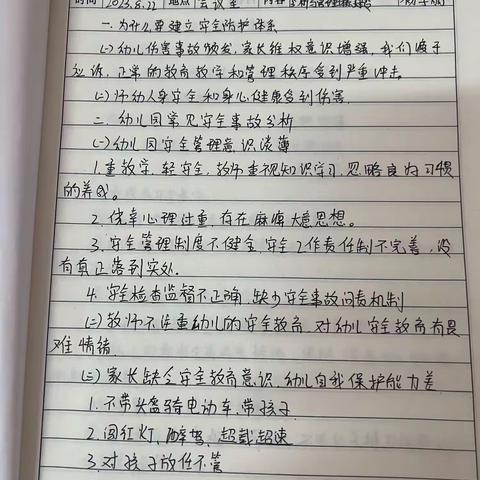 时间 2023.8.22 地点 会议室 内容
一. 为什么要建立安全防护体系
(一)幼儿伤害事故频发, 家长维权意识增强, 我们疲于
应诉, 正常的教育教学和管理秩序受到严重冲击.
(二)师幼人身安全和身心健康受到伤害.
二. 幼儿园常见安全事故分析
(一)幼儿园安全管理意识淡薄
1. 重教学, 轻安全, 教师重视知识学习, 忽略良好习惯
的养成。
2. 侥幸心理过重, 存在麻痹大意思想。
3. 安全管理制度不健全, 安全工作责任制不完善, 没
有真正落到实处.
4. 安全检查监督不正确, 缺少安全事故问责机制
(二)教师不注重幼儿的安全教育, 对幼儿安全教育有畏
难情绪.
(三)家长缺乏安全教育意识, 幼儿自我保护能力差
1. 不带头盔骑电动车, 带孩子
2. 闯红灯, 醉驾, 超载超速
3. 对孩子放任不管